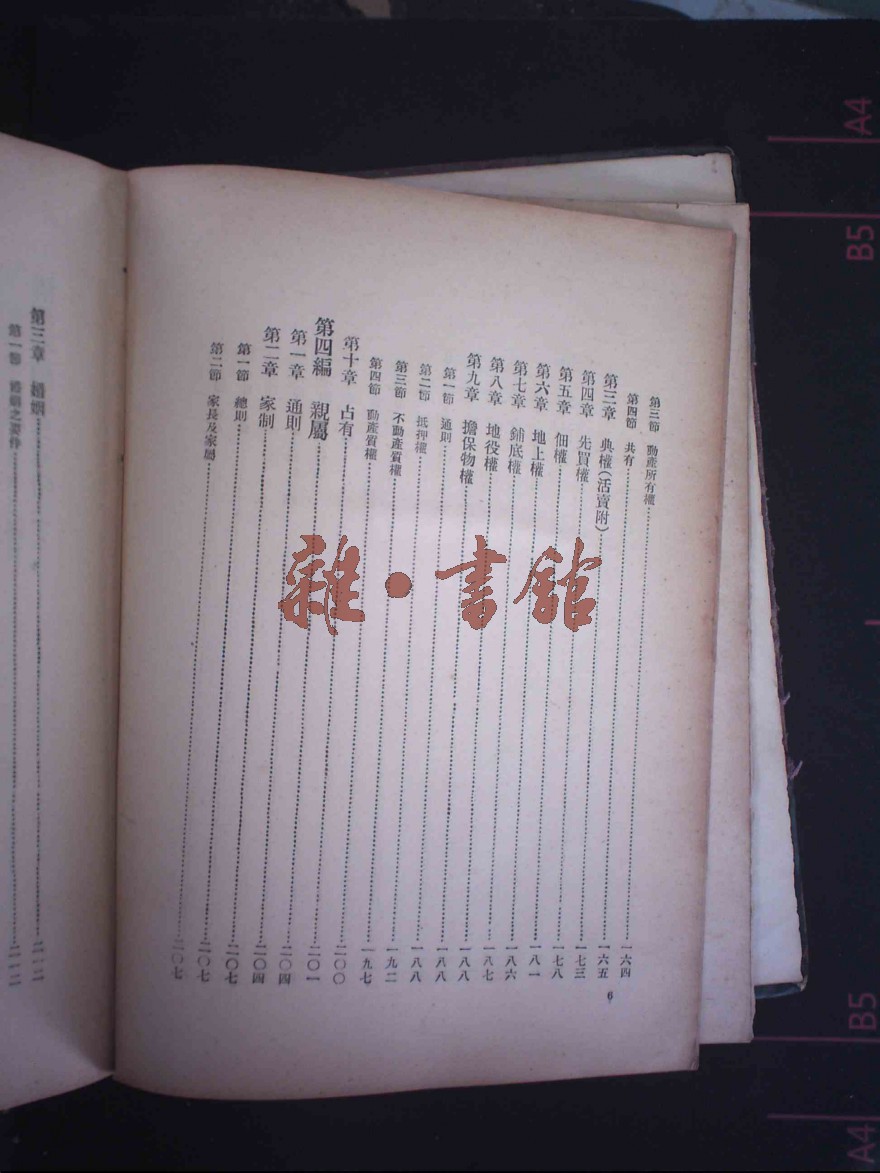 第三節 動產所有權……一六四
第四節 共有……一六五
第三章 典權（活賣附）……一七三
第四章 先買權……一七八
第五章 佃權……一八一
第六章 地上權……一八六
第七章 鋪底權……一八七
第八章 地役權……一八八
第九章 擔保物權……一八八
第一節 通則……一八八
第二節 抵押權……一九二
第三節 不動產質權……一九七
第四節 動產質權……二〇〇
第十章 占有……二〇一
第四編 親屬……二〇四
第一章 通則……二〇四
第二章 家制……二〇七
第一節 總則……二〇七
第二節 家長及家屬……二〇七
6
第三章 婚姻……
第一節 婚姻之要件……
雜·書館
A4
B5
B5
A4